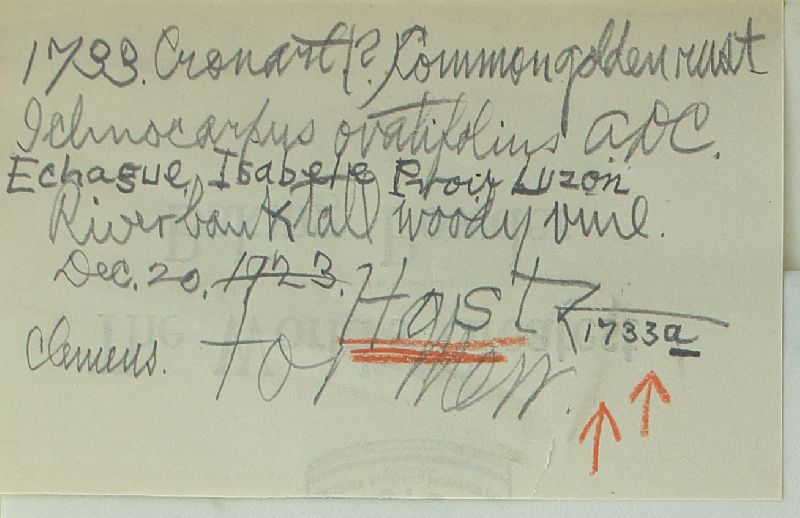 1733. Cronart(?) Common golden rust
Ichnocarpus ovatifolius ADC.
Echague, Isabele Prov. Luzon
Riverbank tall woody vine.
Dec. 20, 1923.
Host
1733a
Clemens. For Merr.